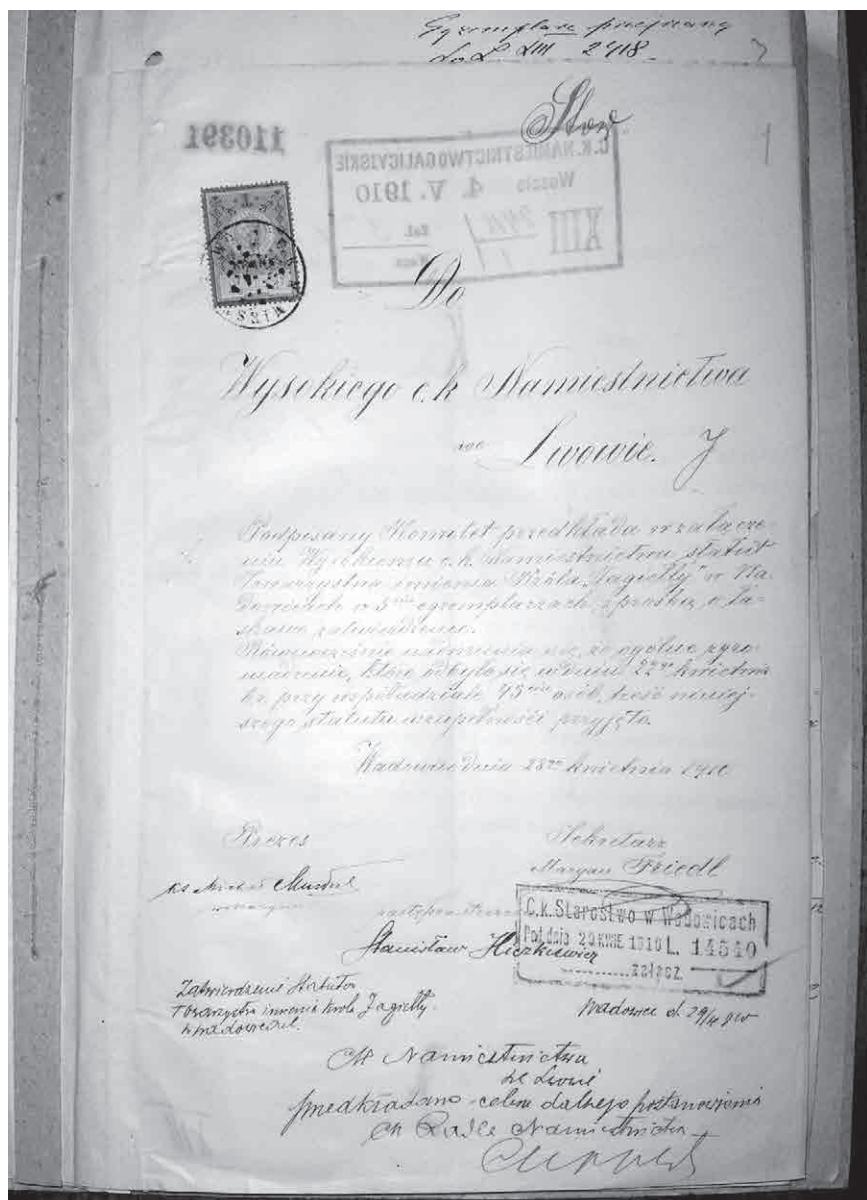 Egzemplarz przejrzany
do L. XIII 2418
Stow
110391
C.K. NAMIESTNICTWO GALICYJSKIE
Weszło 4. V. 1910
XIII
Zał.
Do
Wysokiego c. k Namiestnictwa
we Lwowie.
Podpisany Komitet przedkłada w załącze-
niu Wysokiemu c. k. Namiestnictwu statut
Towarzystwa imienia Króla „Jagiełły" w Wa-
dowicach w 5 egzemplarzach, z prośbą o ła-
skawe zatwierdzenie.
Równocześnie nadmienia się, że ogólne zgro-
madzenie, które odbyło się w dniu 22go kwietnia
br. przy współudziale 45 osób, treść niniej-
szego statutu w zupełności przyjęło.
Wadowice dnia 28go kwietnia 1910
Prezes
Sekretarz
ks
Maryan Friedl
zastępca prezesa
Stanisław
C.k. Starostwo w Wadowicach
Pod dnia 29 KWIE 1910 L. 14540
załącz.
Zatwierdzenie statutów
Towarzystwa imienia króla Jagiełły
w Wadowicach.
Wadowice d. 29/4 910
Ck Namiestnictwu
we Lwowie
przedkładano celem dalszego postanowienia
Ck Radca Namiestnictwa